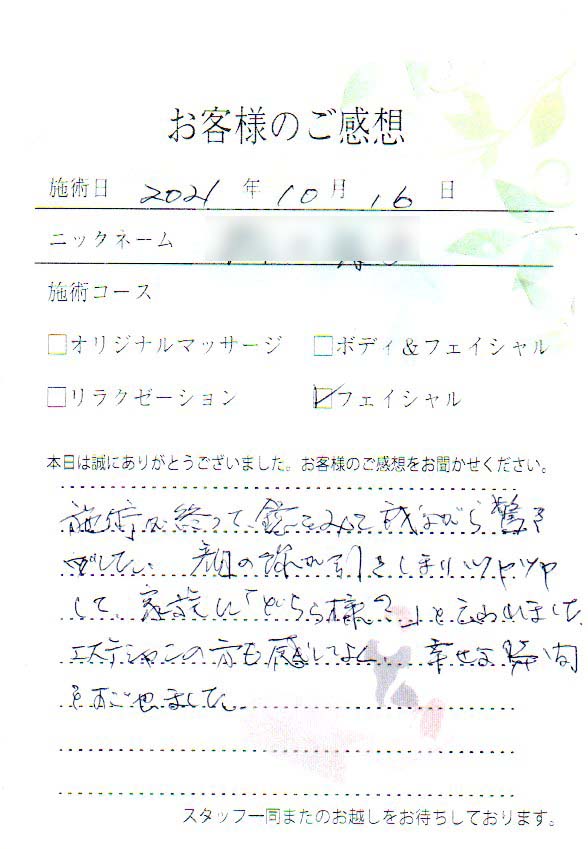 お客様のご感想
施術日 2021 年 10 月 16 日
ニックネーム
施術コース
□オリジナルマッサージ □ボディ&フェイシャル
□リラクゼーション ☑フェイシャル
本日は誠にありがとうございました。お客様のご感想をお聞かせください。
施術が終って、鏡をみて我ながら驚き
でした。顔の 引きしまりツヤツヤ
して、家族に「どちら様?」と云われました
エステシャンの方も感じよく、幸せな 時間
をすごせました。
スタッフ一同またのお越しをお待ちしております。